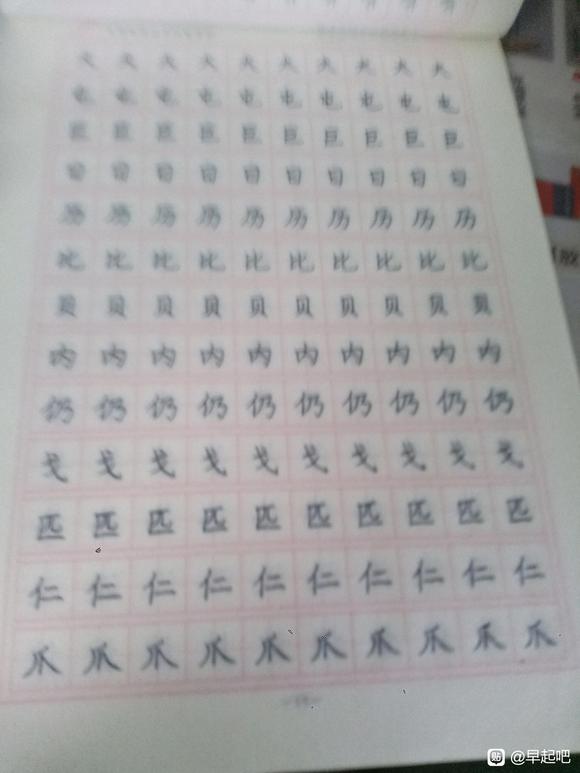 火 火 火 火 火 火 火 火 火 火
屯 屯 屯 屯 屯 屯 屯 屯 屯 屯
巨 巨 巨 巨 巨 巨 巨 巨 巨 巨
曰 曰 曰 曰 曰 曰 曰 曰 曰 曰
历 历 历 历 历 历 历 历 历 历
比 比 比 比 比 比 比 比 比 比
贝 贝 贝 贝 贝 贝 贝 贝 贝 贝
内 内 内 内 内 内 内 内 内 内
仍 仍 仍 仍 仍 仍 仍 仍 仍 仍
戈 戈 戈 戈 戈 戈 戈 戈 戈 戈
匹 匹 匹 匹 匹 匹 匹 匹 匹 匹
仁 仁 仁 仁 仁 仁 仁 仁 仁 仁
爪 爪 爪 爪 爪 爪 爪 爪 爪 爪
贴 @早起吧